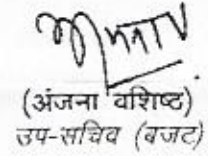 (अंजना वशिष्ट)
उप-सचिव (बजट)